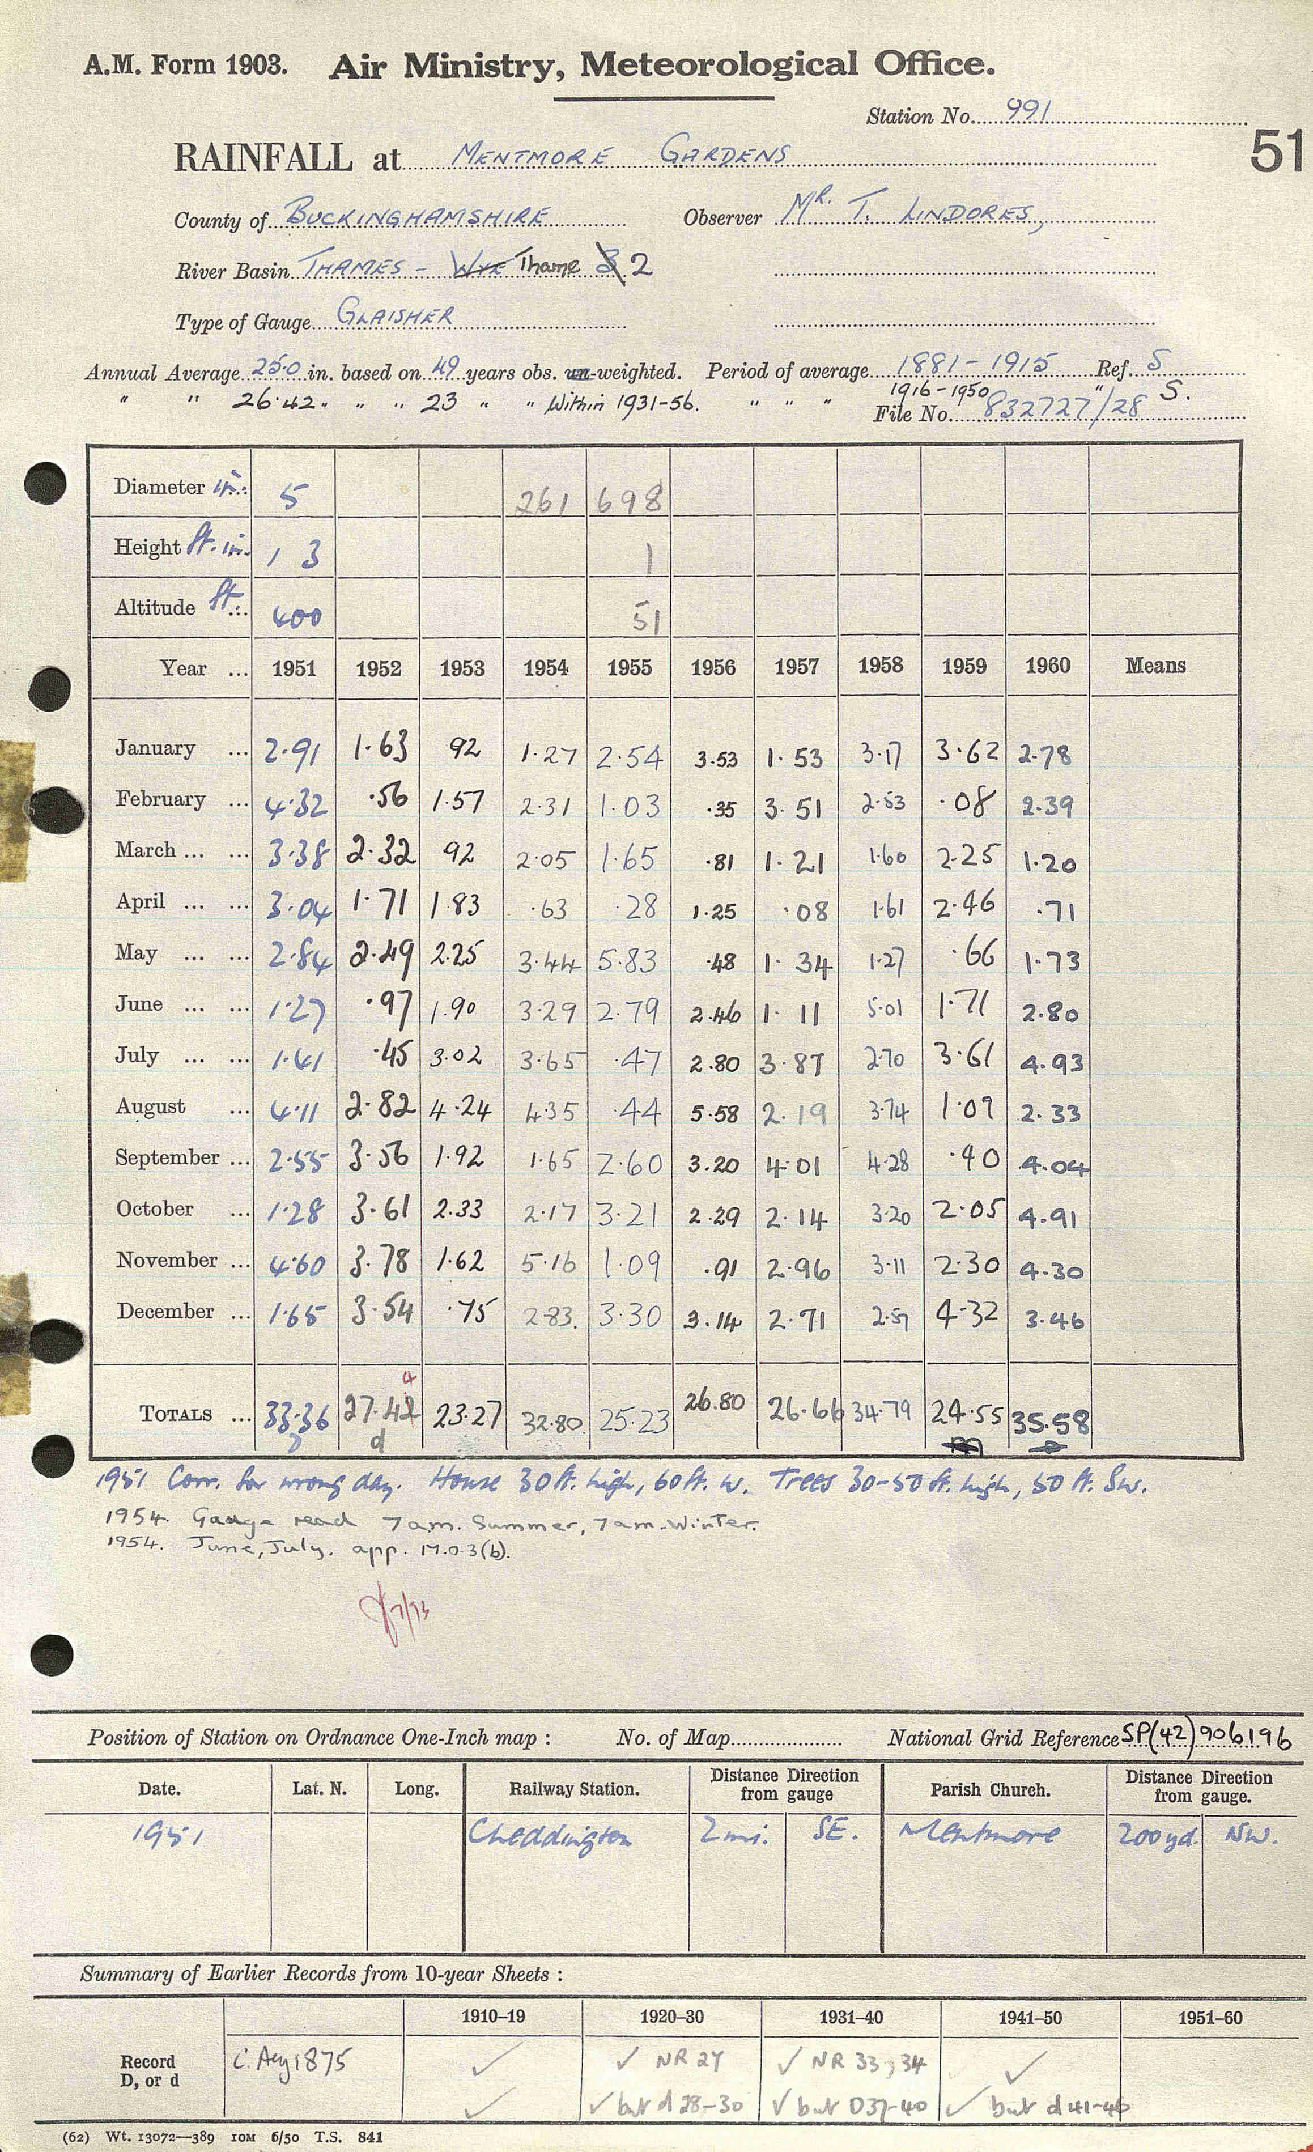 A.M. Form 1903. Air Ministry, Meteorological Office.
Station No. 991
51
RAINFALL at MENTMORE GARDENS
County of BUCKINGHAMSHIRE Observer MR. T. LINDORES,
River Basin THAMES - WYE Thame 3 2
Type of Gauge GLAISHER
Annual Average 25.0 in. based on 49 years obs. un-weighted. Period of average 1881-1915 Ref. S
" " 26.42 " " " 23 " " Within 1931-56. " " " 1916-1950 " S.
File No. 832727/28
Diameter in. 5 261 698
Height ft. in. 1 3 1
Altitude ft. 400 51
Year ... 1951 1952 1953 1954 1955 1956 1957 1958 1959 1960 Means
January ... 2.91 1.63 92 1.27 2.54 3.53 1.53 3.17 3.62 2.78
February ... 4.32 .56 1.57 2.31 1.03 .35 3.51 2.53 .08 2.39
March ... ... 3.38 2.32 92 2.05 1.65 .81 1.21 1.60 2.25 1.20
April ... ... 3.04 1.71 1 83 .63 .28 1.25 .08 1.61 2.46 .71
May ... ... 2.84 2.49 2.25 3.44 5.83 .48 1.34 1.27 .66 1.73
June ... ... 1.27 .97 1.90 3.29 2.79 2.46 1.11 5.01 1.71 2.80
July ... ... 1.41 .45 3.02 3.65 .47 2.80 3.87 2.70 3.61 4.93
August ... 4.11 2.82 4.24 4.35 .44 5.58 2.19 3.74 1.09 2.33
September ... 2.55 3.56 1.92 1.65 2.60 3.20 4.01 4.28 .40 4.04
October ... 1.28 3.61 2.33 2.17 3.21 2.29 2.14 3.20 2.05 4.91
November ... 4.60 3.78 1.62 5.16 1.09 .91 2.96 3.11 2.30 4.30
December ... 1.65 3.54 .75 2.83. 3.30 3.14 2.71 2.57 4.32 3.46
TOTALS ... 33.36 27.42 23.27 32.80 25.23 26.80 26.66 34.79 24.55 35.58
4
d
1951 Corr. for wrong day. House 30 ft. high, 60 ft. W. Trees 30-50 ft. high, 50 ft. SW.
1954. Gauge read 7am. Summer, 7am. Winter.
1954. June, July. app. M.O.3(b).
7/73
Position of Station on Ordnance One-Inch map : No. of Map National Grid Reference SP(42)906196
Date. Lat. N. Long. Railway Station. Distance Direction from gauge Parish Church. Distance Direction from gauge.
1951 Cheddington 2mi. SE. Mentmore 200yd. NW.
Summary of Earlier Records from 10-year Sheets :
1910–19 1920–30 1931–40 1941–50 1951–60
Record D, or d
c. Aug 1875 ✓ ✓ NR 27 ✓ NR 33, 34 ✓
✓ ✓ but d 28-30 ✓ but D37-40 ✓ but d 41-46
(62) Wt. 13072—389 10M 6/50 T.S. 841